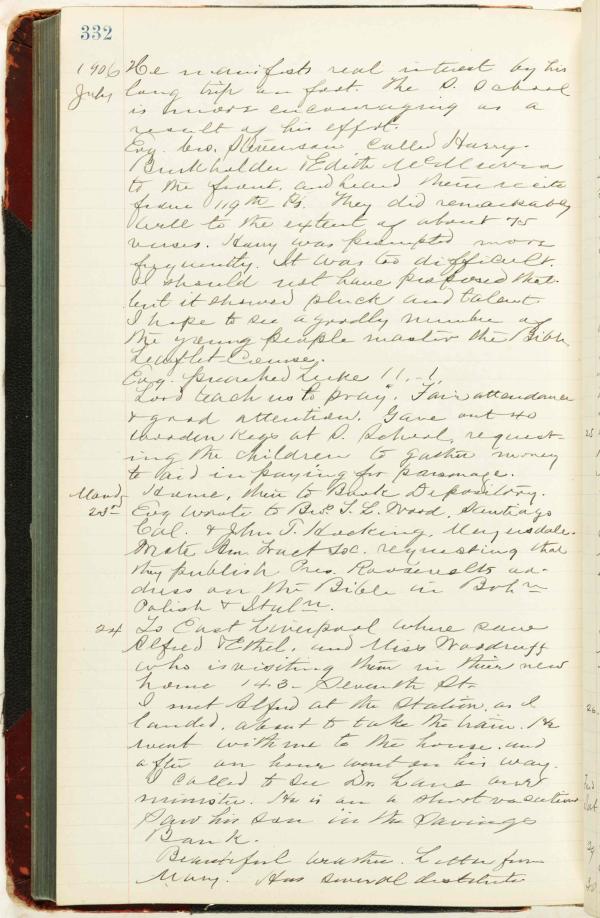 332
1906 He manifests real interest by his
July long trip on foot. The S. School
is more encouraging as a
result of his effort.
Evg. Geo. Stevenson called Harry
Burkholder & Edith McMurra
to the front, and heard them recite
from 119th Ps. They did remarkably
well to the extent of about 75
verses. Harry was prompted more
frequently. It was too difficult.
I should not have proposed that
but it showed pluck and talent.
I hope to see a goodly number of
the young people master the Bible
Leaflet Course.
Evg. preached Luke 11.-1.
"Lord teach us to pray". Fair attendance
& good attention. Gave out 40
wooden kegs at S. School, request-
ing the children to gather money
to aid in paying for parsonage.
Mond- Home, then to Book Depository.
23d Evg wrote to Bros T. L. Wood,
Cal. & John T. Hocking,
Wrote Am. Tract Soc. requesting that
they publish Pres. Roosevelt's ad-
dress on the Bible in Bohn
Polish & Italn.
24 To East Liverpool where saw
Alfred & Ethel, and Miss Woodruff
who is visiting them in their new
home 143 - Seventh St.
I met Alfred at the station, as I
landed, about to take the train. He
went with me to the house, and
after an hour went on his way.
I called to see Dr. Lana our
minister. He is on a short vacation
Saw his son in the Savings
Bank.
Beautiful weather. Letter from
Mary. Has several destitute